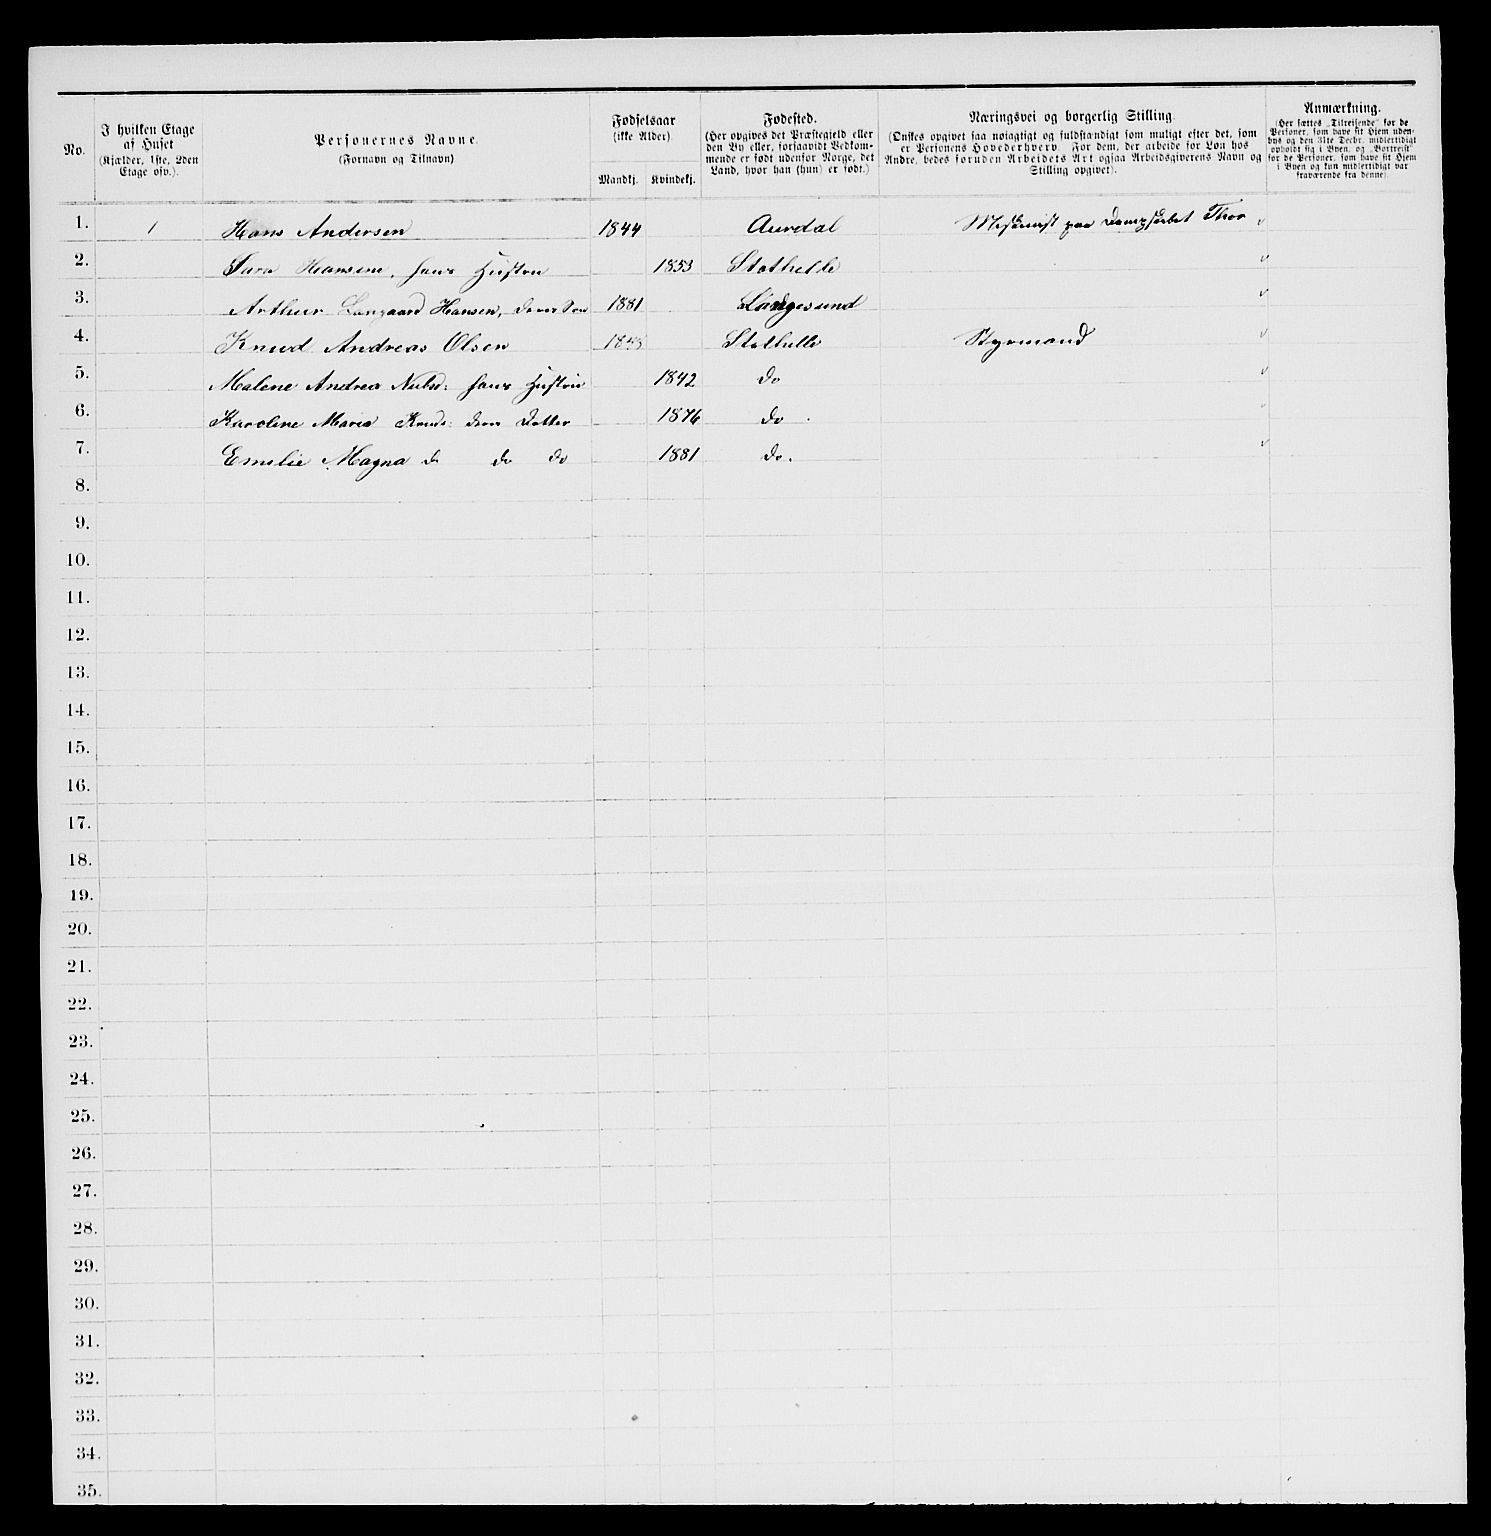 No.
I hvilken Etage af Huset (Kjælder, 1ste, 2den Etage osv.).
Personernes Navne. (Fornavn og Tilnavn)
Fødselsaar (ikke Alder). Mandkj. Kvindekj.
Fødested. (Her opgives det Præstegjeld eller den By eller, forsaavidt Vedkommende er født udenfor Norge, det Land, hvor han (hun) er født.)
Næringsvei og borgerlig Stilling. (Ønskes opgivet saa nøiagtigt og fuldstændigt som muligt efter det, som er Personens Hovederhverv. For dem, der arbeide for Løn hos Andre, bedes foruden Arbeidets Art ogsaa Arbeidsgiverens Navn og Stilling opgivet).
Anmærkning. (Her sættes „Tilreisende" for de Personer, som have sit Hjem udenbys og den 31te Decbr. midlertidigt opholdt sig i Byen, og „Bortreist" for de Personer, som have sit Hjem i Byen og kun midlertidigt var fraværende fra denne).
1. 1 Hans Andersen 1844 Aurdal Maskinist paa Dampskibet Thor
2. Sara Hansen, hans Hustru 1853 Stathelle
3. Arthur Langaard Hansen, deres Søn 1881 Langesund
4. Knud Andreas Olsen Stathelle Styrmand
5. Malene Andrea hans Hustru 1842 do
6. Karoline Marie Knuds: deres Datter 1876 do.
7. Emilie Magna do do do 1881 do.
8.
9.
10.
11.
12.
13.
14.
15.
16.
17.
18.
19.
20.
21.
22.
23.
24.
25.
26.
27.
28.
29.
30.
31.
32.
33.
34.
35.